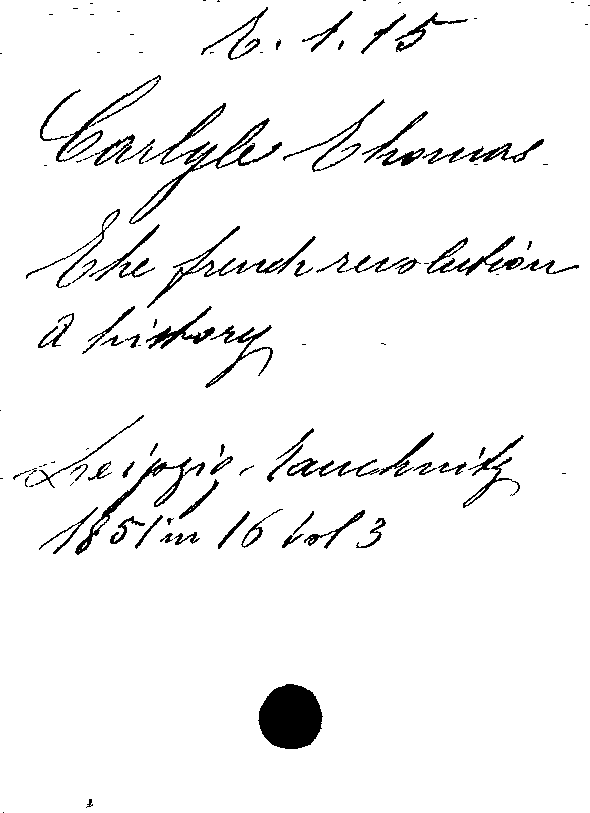 E. 1. 15
Carlyle Thomas
The french revolution
A history
Leipzig, Tauchnitz
1851 in 16 vol 3